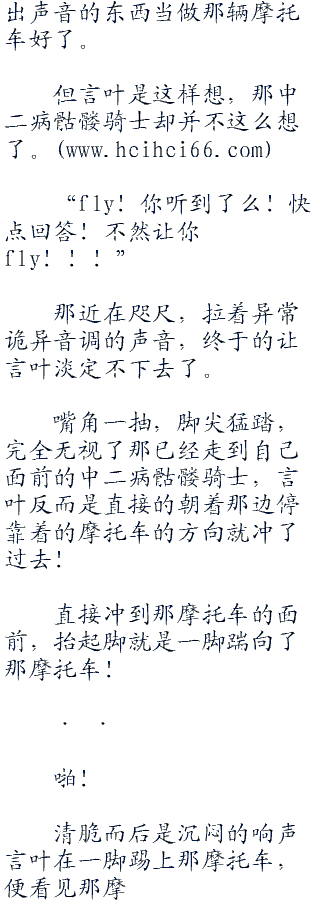 出声音的东西当做那辆摩托
车好了。
但言叶是这样想，那中
二病骷髅骑士却并不这么想
了。(www.hcihci66.com)
“fly！你听到了么！快
点回答！不然让你
fly！！！”
那近在咫尺，拉着异常
诡异音调的声音，终于的让
言叶淡定不下去了。
嘴角一抽，脚尖猛踏，
完全无视了那已经走到自己
面前的中二病骷髅骑士，言
叶反而是直接的朝着那边停
靠着的摩托车的方向就冲了
过去！
直接冲到那摩托车的面
前，抬起脚就是一脚踹向了
那摩托车！
. .
啪！
清脆而后是沉闷的响声
言叶在一脚踢上那摩托车，
便看见那摩